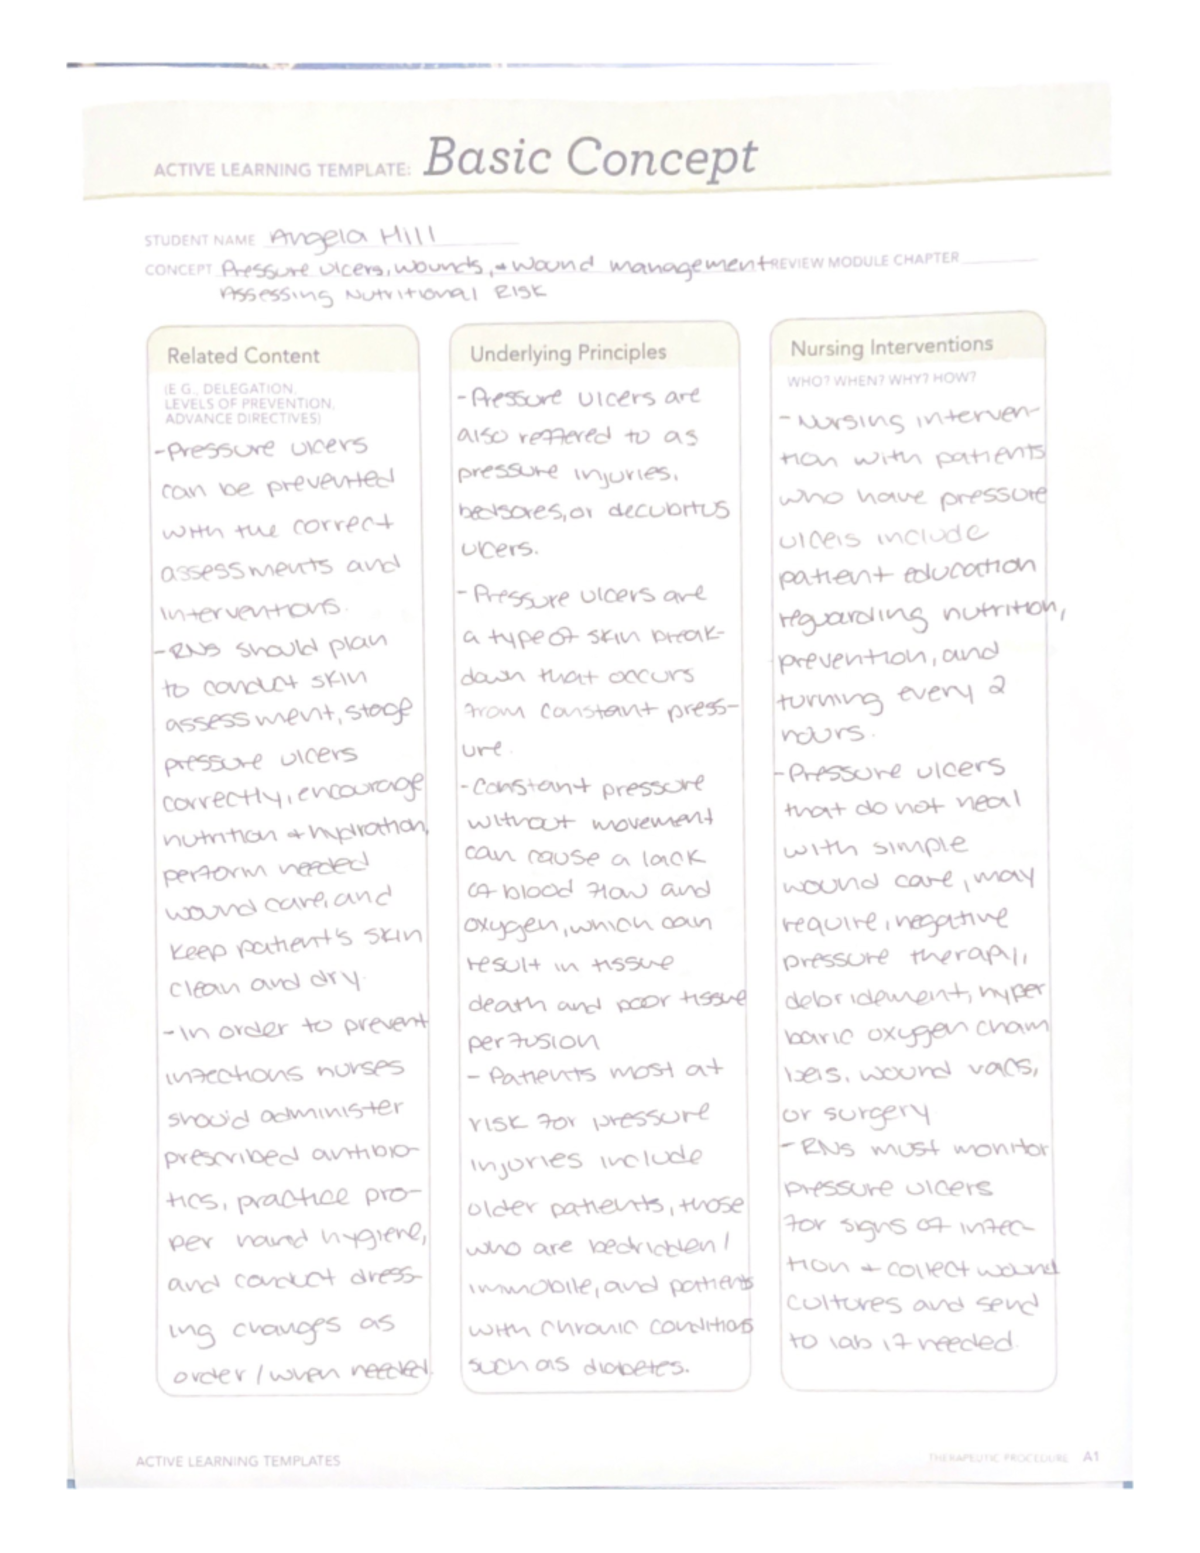 ACTIVE LEARNING TEMPLATE: Basic Concept
STUDENT NAME Angela Hill
CONCEPT Pressure ulcers, wounds, + wound management REVIEW MODULE CHAPTER
Assessing Nutritional Risk
Related Content
(E.G., DELEGATION,
LEVELS OF PREVENTION,
ADVANCE DIRECTIVES)
-Pressure ulcers
can be prevented
with the correct
assessments and
interventions.
-RNs should plan
to conduct skin
assessment, stage
pressure ulcers
correctly, encourage
nutrition + hydration,
perform needed
wound care, and
keep patient's skin
clean and dry.
-In order to prevent
infections nurses
should administer
prescribed antibio-
tics, practice pro-
per hand hygiene,
and conduct dress-
ing changes as
order / when needed.
Underlying Principles
-Pressure ulcers are
also reffered to as
pressure injuries,
bedsores, or decubitus
ulcers.
-Pressure ulcers are
a type of skin break-
down that occurs
from constant press-
ure.
-Constant pressure
without movement
can cause a lack
of blood flow and
oxygen, which can
result in tissue
death and poor tissue
perfusion
- Patients most at
risk for pressure
injuries include
older patients, those
who are bedridden /
immobile, and patients
with chronic conditions
such as diabetes.
Nursing Interventions
WHO? WHEN? WHY? HOW?
- Nursing interven-
tion with patients
who have pressure
ulcers include
patient education
regarding nutrition,
prevention, and
turning every 2
hours.
-Pressure ulcers
that do not heal
with simple
wound care, may
require, negative
pressure therapy,
debridement, hyper
baric oxygen cham
bers, wound vacs,
or surgery
-RNs must monitor
pressure ulcers
for signs of infec-
tion + collect wound
cultures and send
to lab if needed.
ACTIVE LEARNING TEMPLATES
THERAPEUTIC PROCEDURE A1